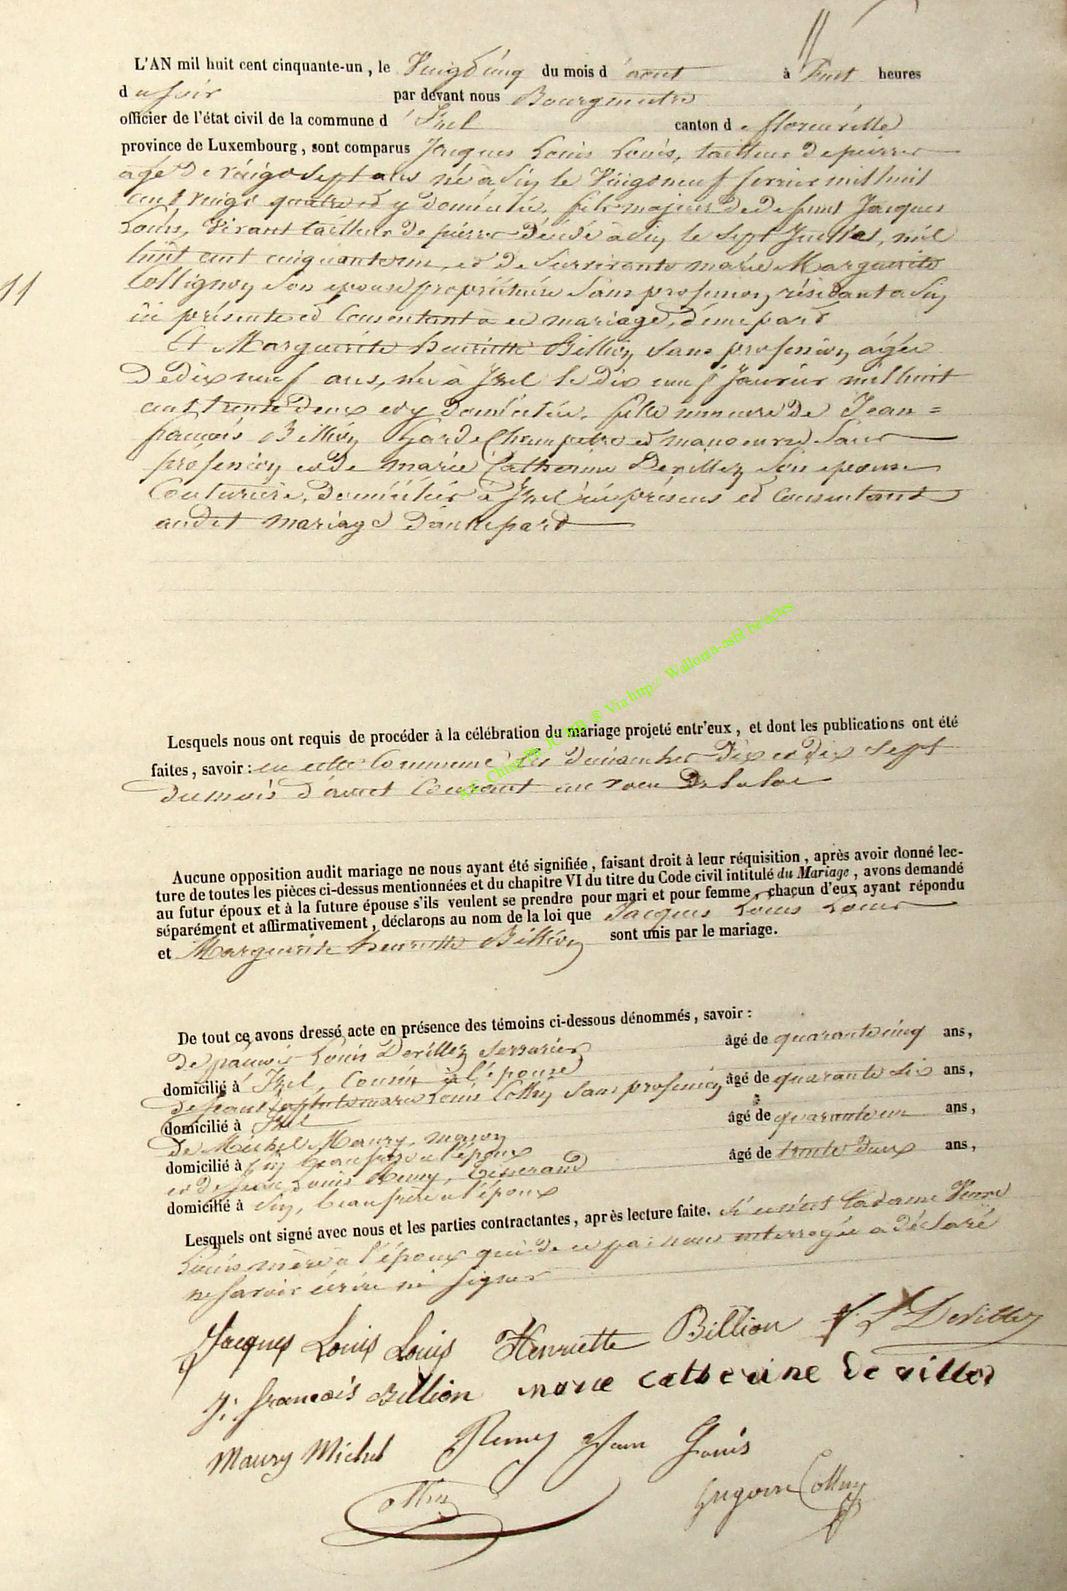 11
L'AN mil huit cent cinquante-un, le Vingt cinq du mois d'aout à huit heures
du soir par devant nous Bourgmestre
officier de l'état civil de la commune d'Izel canton de florenville
province de Luxembourg, sont comparus Jacques Louis Louis, tailleur de pierre
agé de vingt sept ans né à le Vingt neuf fevrier mil huit
cent vingt quatre et y domicilié, fils majeur de defunt Jacques
Louis, vivant tailleur de pierre décédé à le sept Juillet, mil
huit cent cinquante un, et de survivante marie Marguerite
Collignon son epouse propriétaire sans profession, résidant à
ici présente et consentante a ce mariage, d'une part
Et Marguerite henriette Billion, sans profession, agée
De dix neuf ans, née à Izel le dix neuf Janvier mil huit
cent trente deux et y domiciliée, fille mineure de Jean =
françois Billion, Garde Champetre et manoeuvre sans
profession, et de marie Catherine Devillez son epouse
Couturière, domiciliés à Izel ici présens et consentant
audit mariage D'autre part
Lesquels nous ont requis de procéder à la célébration du mariage projeté entr'eux, et dont les publications ont été
faites, savoir : en cette Commune les dimanches Dix et dix sept
du mois d'aout Courant au voeu De la loi
Aucune opposition audit mariage ne nous ayant été signifiée, faisant droit à leur réquisition, après avoir donné lec-
ture de toutes les pièces ci-dessus mentionnées et du chapitre VI du titre du Code civil intitulé du Mariage, avons demandé
au futur époux et à la future épouse s'ils veulent se prendre pour mari et pour femme, chacun d'eux ayant répondu
séparément et affirmativement, déclarons au nom de la loi que Jacques Louis Louis
et Marguerite henriette Billion sont unis par le mariage.
De tout ce avons dressé acte en présence des témoins ci-dessous dénommés, savoir :
de françois Louis Devillez serrurier âgé de quarante cinq ans,
domicilié à Izel, Cousin à l'épouse
de Jean marie Louis sans profession âgé de quarante six ans,
domicilié à Izel
de Michel Maury, maçon âgé de quarante un ans,
domicilié à beau frère a l'époux
et de Jean Louis Remy, tisserand âgé de trente deux ans,
domicilié à beau frère a l'époux
Lesquels ont signé avec nous et les parties contractantes, après lecture faite. Si ce n'est la dame Veuve
Louis mère à l'époux qui de ce par nous interrogée a déclaré
ne savoir écrire ni signer
Jacques Louis Louis Henriette Billion Devillez
J: françois Billion marie catherine de villez
Maury Michel Remy Jean Louis
Gregoire